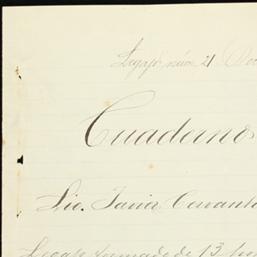 Legajo núm 21 Do
Cuaderno
Lic. Javier Cervant
Legajo formado de 13